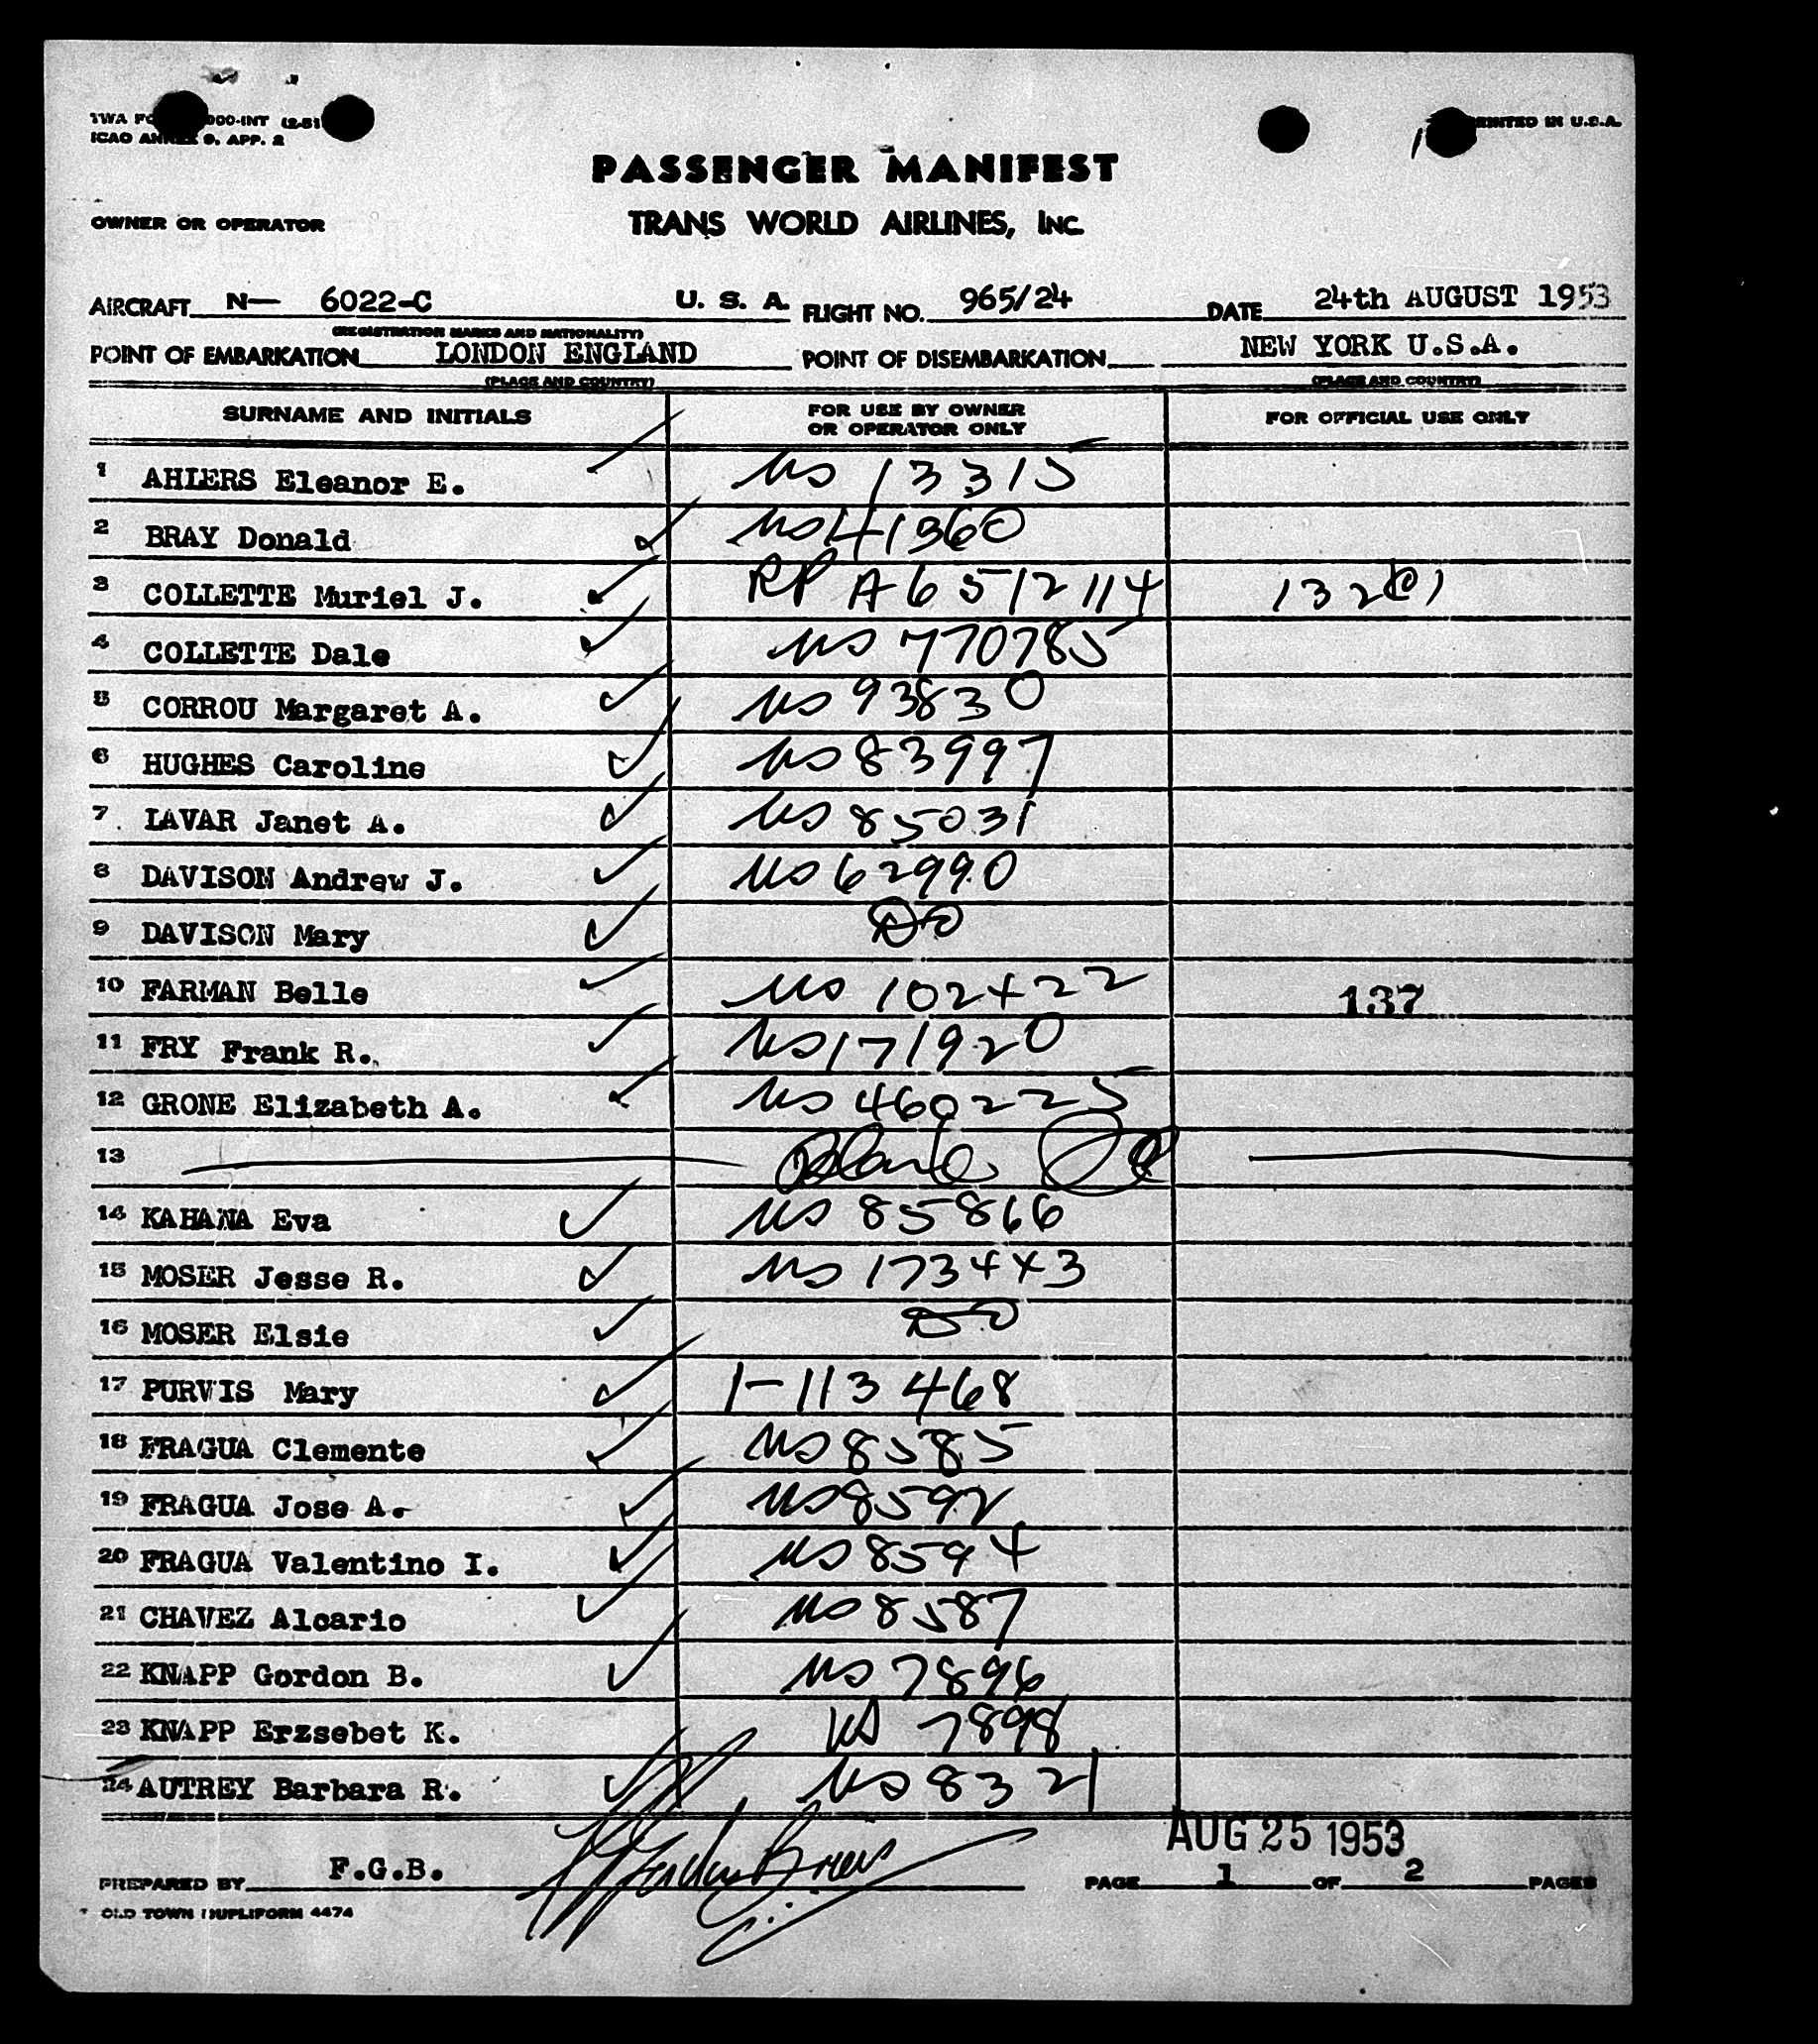 TWA FO 000-INT (2-51
ICAO ANNEX 9, APP. 2
PRINTED IN U.S.A.
PASSENGER MANIFEST
OWNER OR OPERATOR
TRANS WORLD AIRLINES, INC.
AIRCRAFT N— 6022-C U. S. A. FLIGHT NO. 965/24 DATE 24th AUGUST 1953
(REGISTRATION MARKS AND NATIONALITY)
POINT OF EMBARKATION LONDON ENGLAND POINT OF DISEMBARKATION NEW YORK U.S.A.
(PLACE AND COUNTRY) (PLACE AND COUNTRY)
SURNAME AND INITIALS FOR USE BY OWNER OR OPERATOR ONLY FOR OFFICIAL USE ONLY
1 AHLERS Eleanor E. US 13315
2 BRAY Donald US 41360
3 COLLETTE Muriel J. RP A6512114 132(e)
4 COLLETTE Dale US 770785
5 CORROU Margaret A. US 93830
6 HUGHES Caroline US 83997
7 LAVAR Janet A. US 85031
8 DAVISON Andrew J. US 62990
9 DAVISON Mary Do
10 FARMAN Belle US 102422 137
11 FRY Frank R. US 171920
12 GRONE Elizabeth A. US 460225
13 Blank
14 KAHANA Eva US 85866
15 MOSER Jesse R. US 173443
16 MOSER Elsie Do
17 PURVIS Mary 1-113468
18 FRAGUA Clemente US 8585
19 FRAGUA Jose A. US 8592
20 FRAGUA Valentino I. US 8594
21 CHAVEZ Alcario US 8587
22 KNAPP Gordon B. US 7896
23 KNAPP Erzsebet K. US 7898
24 AUTREY Barbara R. US 8321
AUG 25 1953
PREPARED BY F.G.B. PAGE 1 OF 2 PAGES
OLD TOWN DUPLIFORM 4474